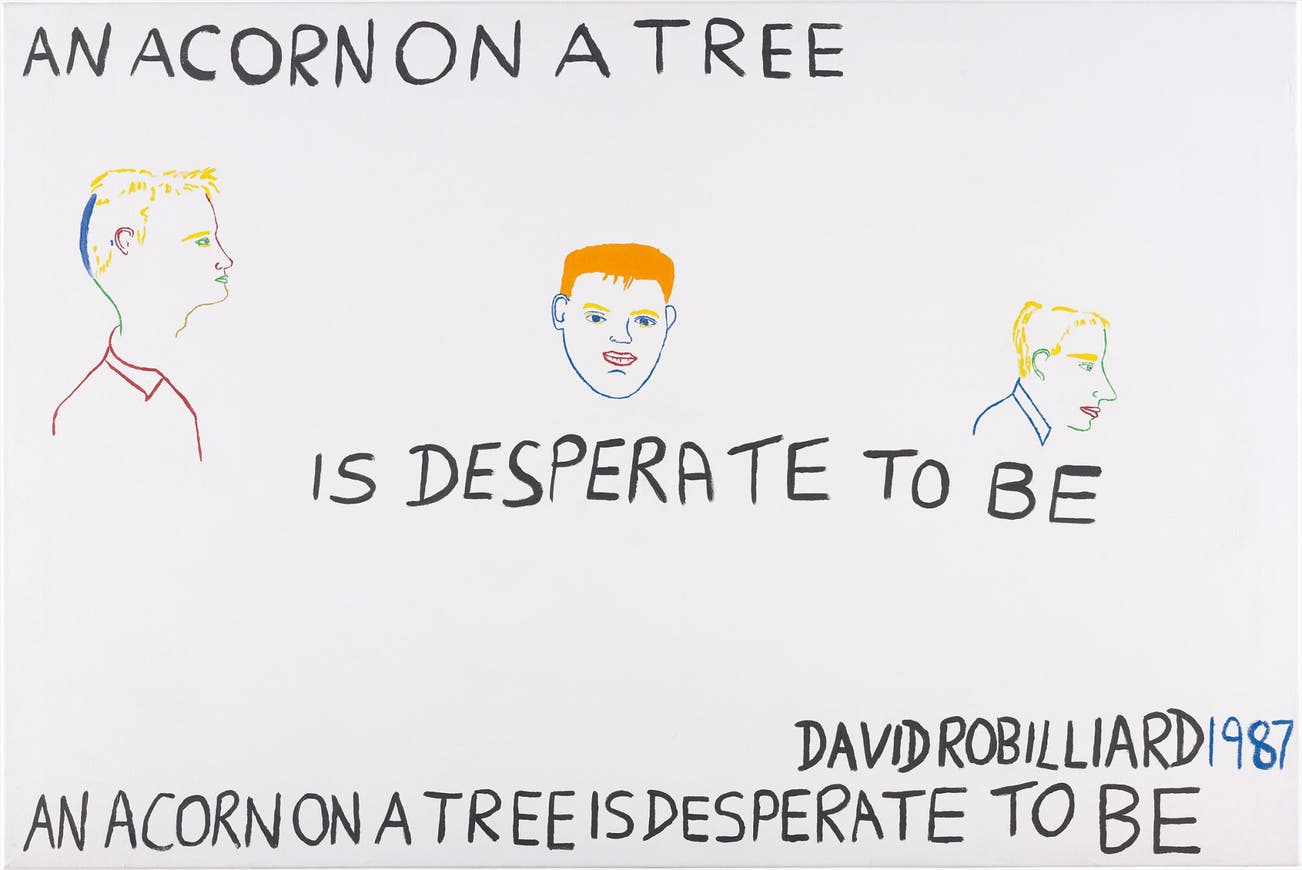 AN ACORN ON A TREE
IS DESPERATE TO BE
DAVID ROBILLIARD 1987
AN ACORN ON A TREE IS DESPERATE TO BE